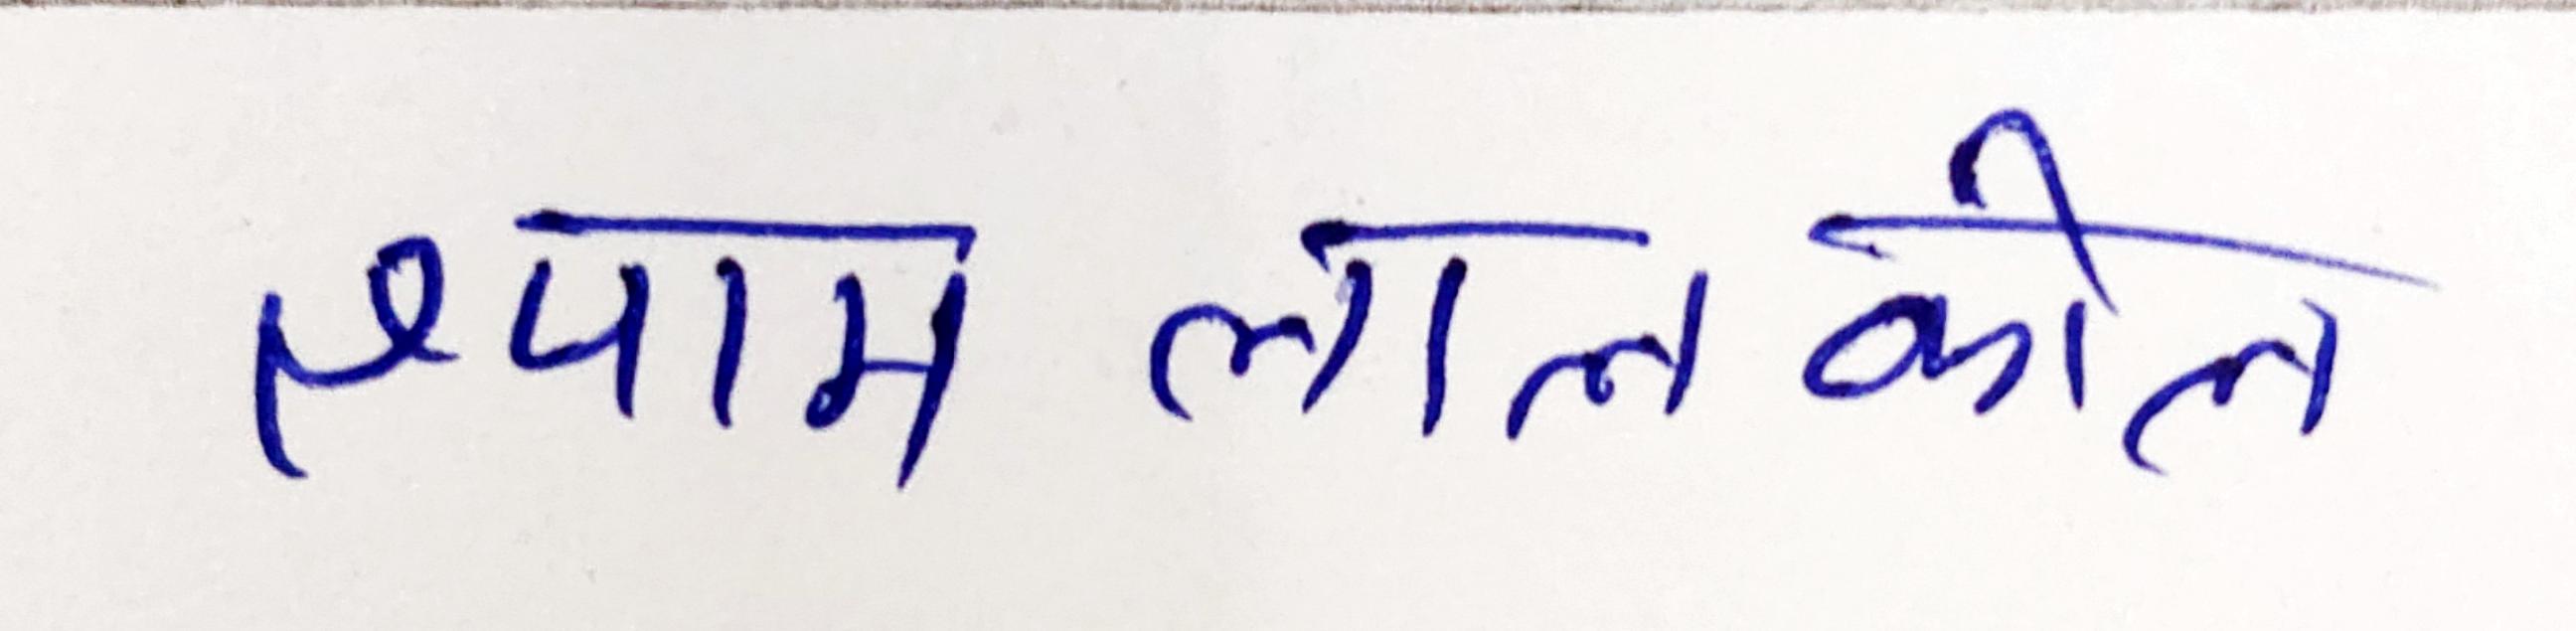 श्याम लाल कोल